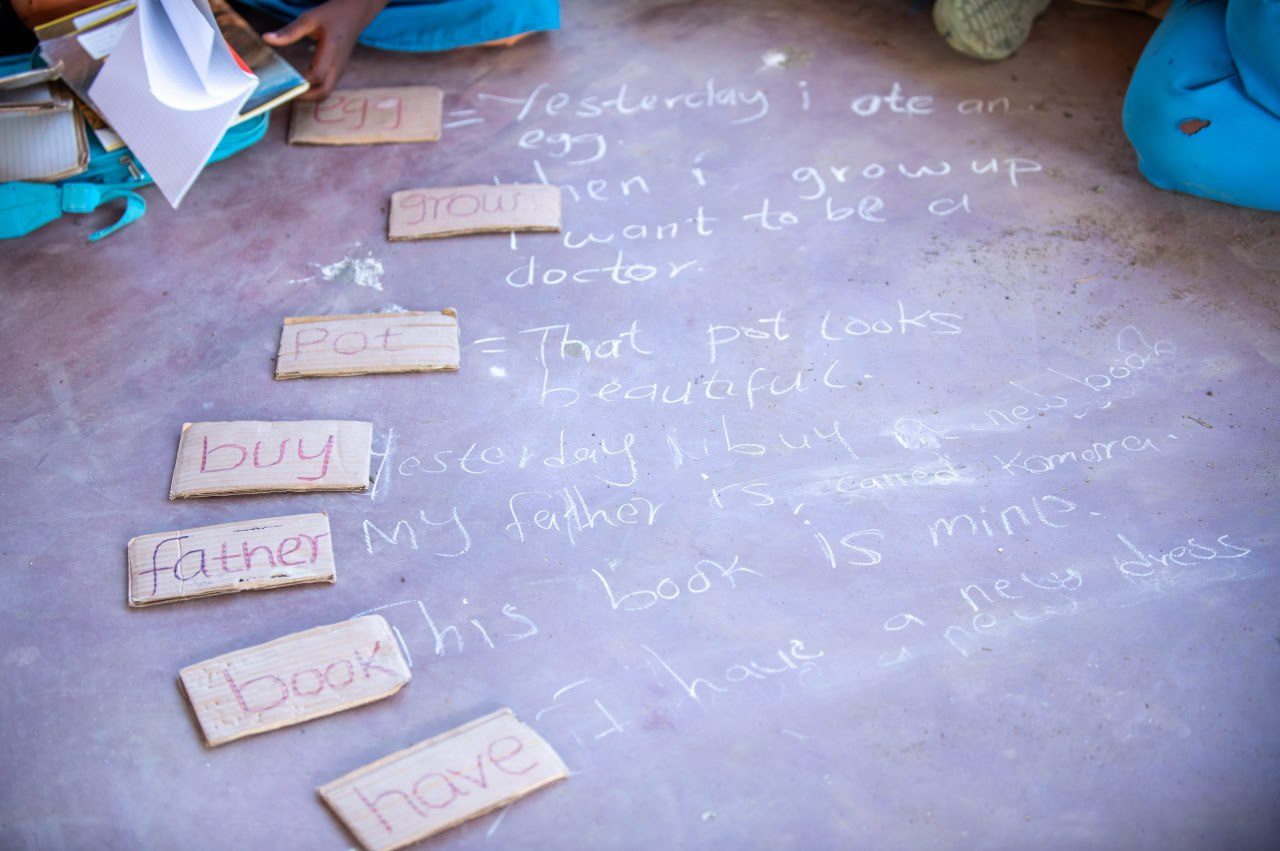 egg = Yesterday i ate an.
egg.
grow when i grow up
I want to be a
doctor.
Pot = That pot looks
beautiful.
buy Yesterday buy a new book
father My father is, called Komorra.
book This book is mine.
have I have a new dress
new